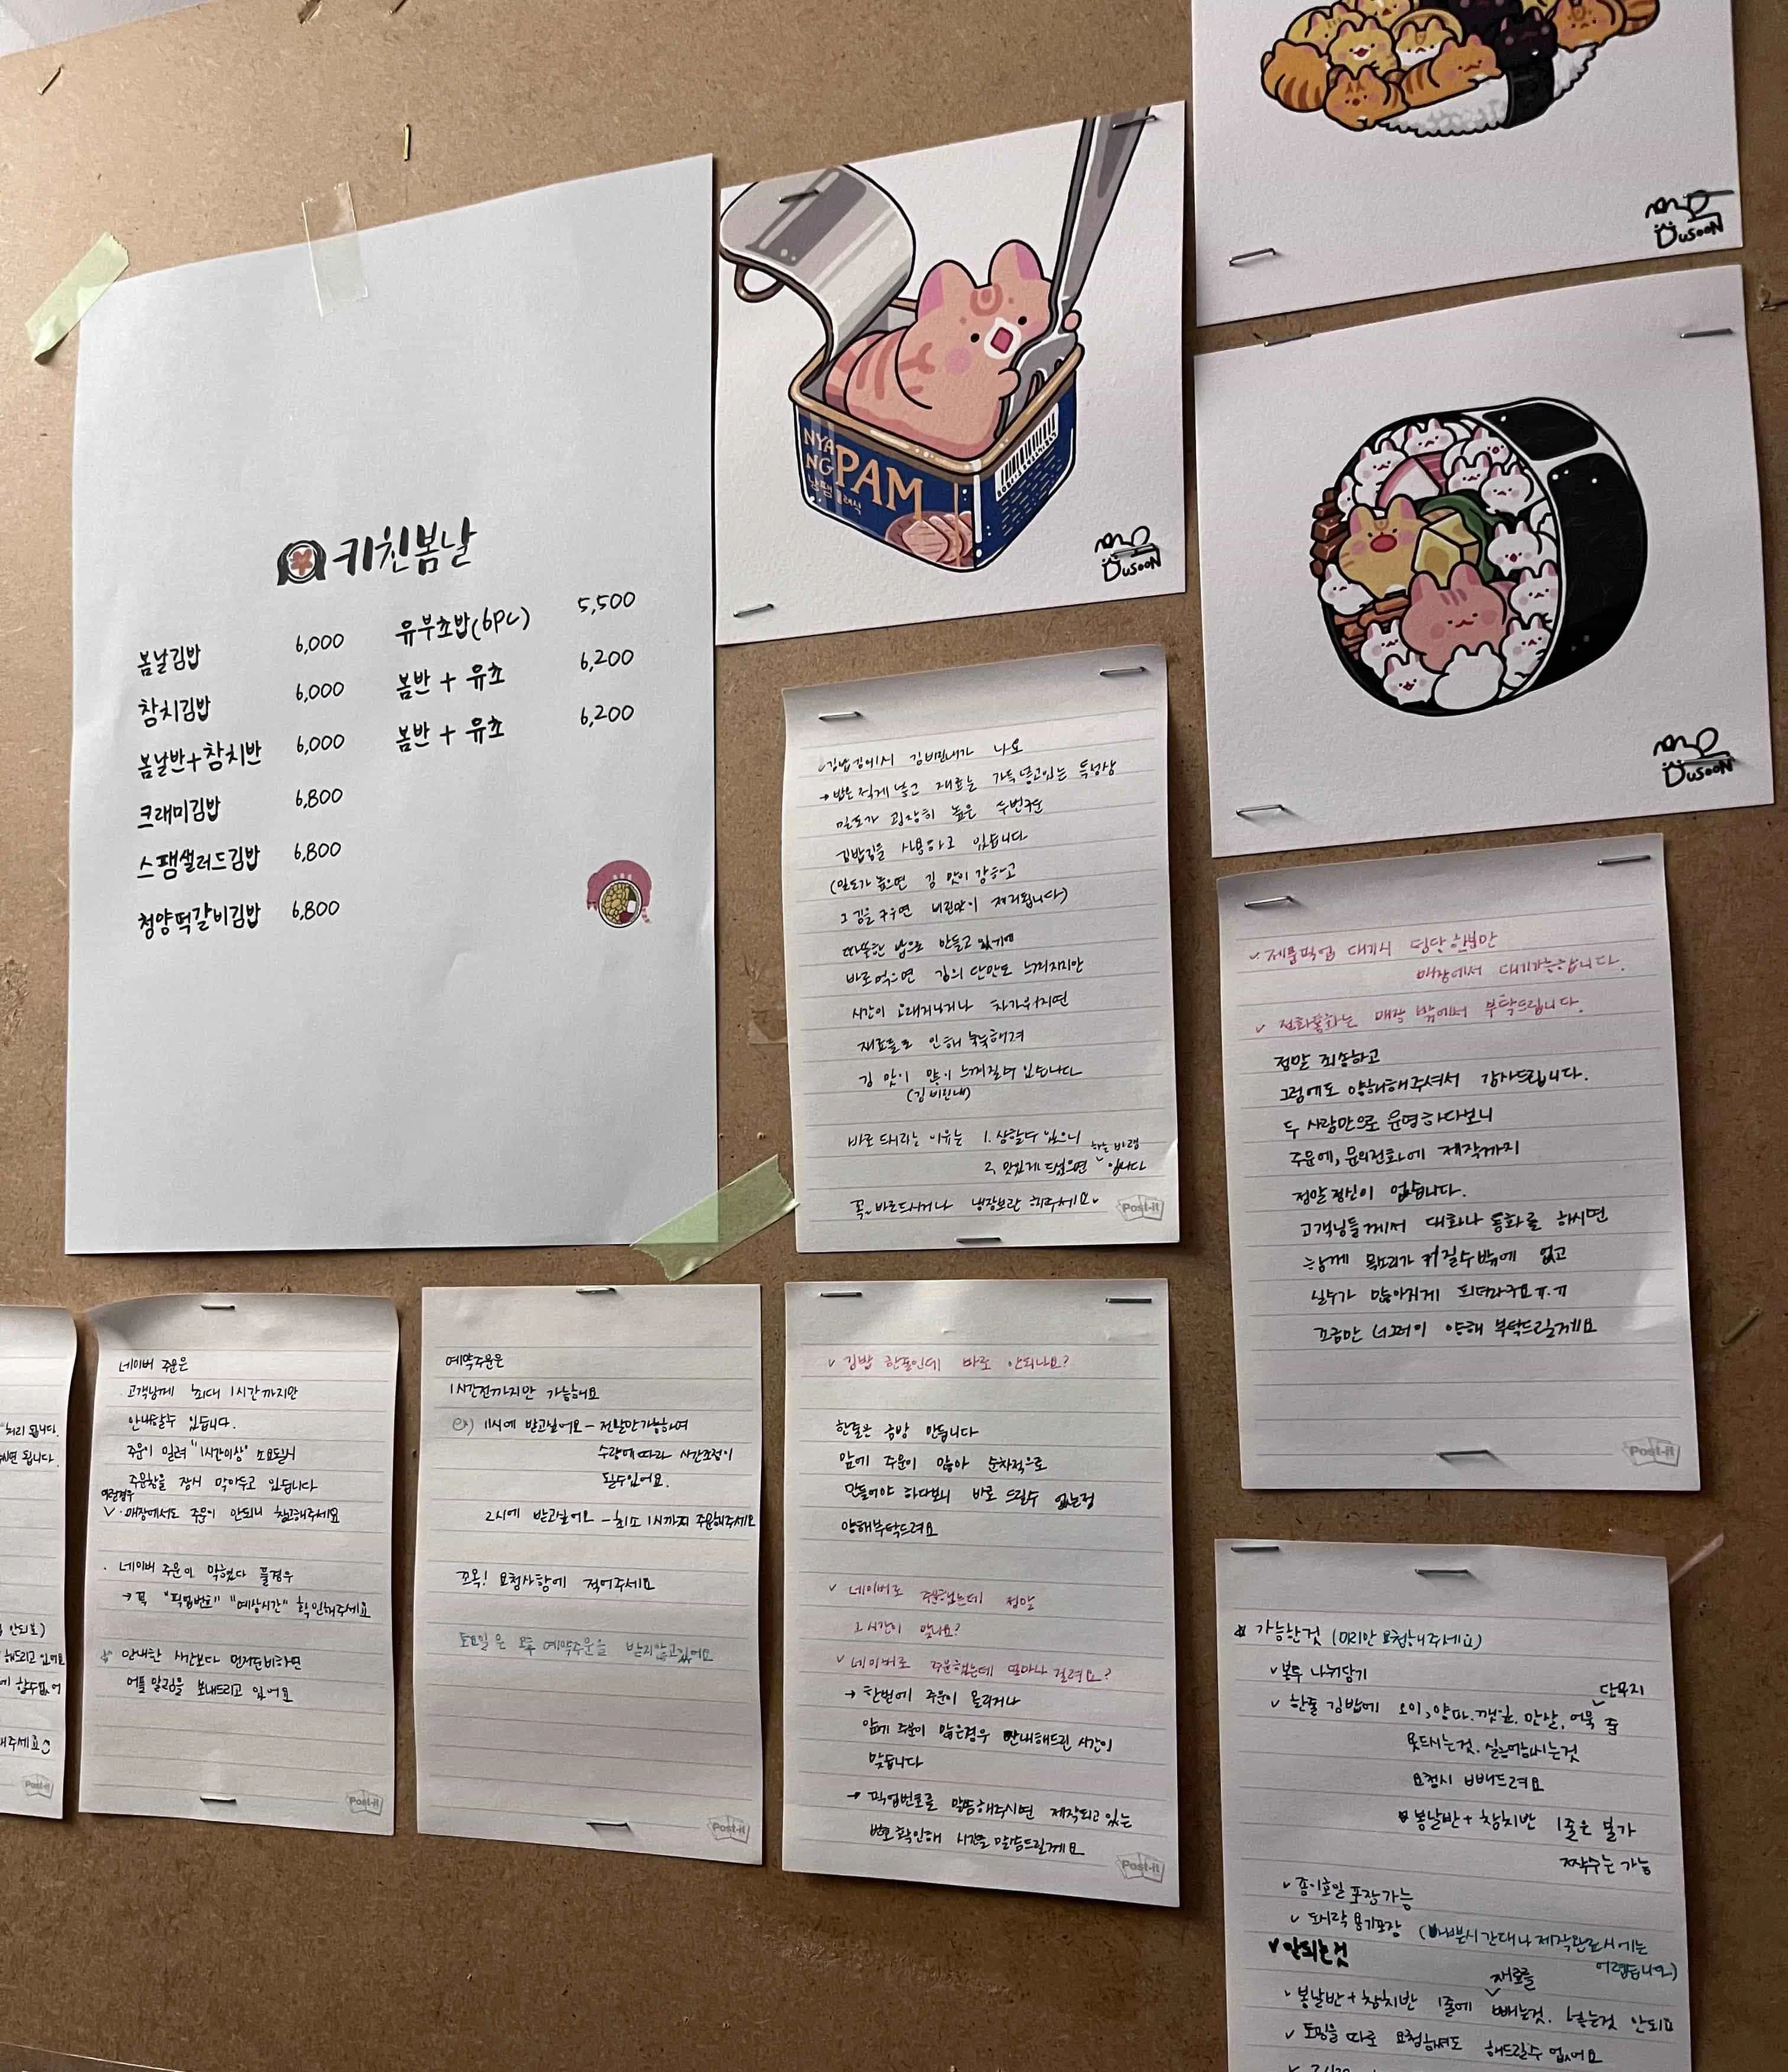 키친봄날
봄날김밥 6,000
참치김밥 6,000
봄날반+참치반 6,000
크래미김밥 6,800
스팸샐러드김밥 6,800
청양떡갈비김밥 6,800
유부초밥(6pc) 5,500
봄반 + 유초 6,200
봄반 + 유초 6,200
NYA
NG PAM
냥팸 클래식
DUSOON
DUSOON
DUSOON
김밥김에서 김비린내가 나요
→ 밥은 적게 넣고 재료를 가득 넣고있는 특성상
밀도가 굉장히 높은 두번구운
김밥김을 사용하고 있습니다
(밀도가 높으면 김 맛이 강하고
그 김을 구우면 비린맛이 제거됩니다)
따뜻한 밥으로 만들고 있기에
바로먹으면 김의 단맛도 느껴지지만
시간이 오래지났거나 차가워지면
재료들로 인해 눅눅해져
김 맛이 많이 느껴질수 있습니다
(김 비린내)
바로 드시라는 이유는 1. 상할수 있으니
2. 맛있게 드셨으면 하는 바램 입니다
꼭~ 바로드시거나 냉장보관 해주세요~
Post-it
✓ 제품픽업 대기시 팀당 한분만
매장에서 대기가능합니다.
✓ 전화통화는 매장 밖에서 부탁드립니다.
정말 죄송하고
그럼에도 양해해주셔서 감사드립니다.
두 사람만으로 운영하다보니
주문에, 문의전화에 제작까지
정말정신이 없습니다.
고객님들께서 대화나 통화를 하시면
목소리가 커질수밖에 없고
실수가 많아지게 되더라구요ㅠ.ㅠ
조금만 너그러이 양해 부탁드릴게요
Post-it
네이버 주문은
고객님께 최대 1시간까지만
안내할수 있습니다.
주문이 밀려 "1시간이상" 소요될시
주문창을 잠시 막아두고 있습니다
이런경우
✓ 매장에서도 주문이 안되니 참고해주세요
· 네이버 주문이 막혔다 풀경우
→ 꼭 "픽업번호" "예상시간" 확인해주세요
☆ 안내한 시간보다 먼저준비하면
어플 알림을 보내드리고 있어요
Post-it
예약주문은
1시간전까지만 가능해요
ex) 11시에 받고싶어요 - 전날만가능하며
수량에따라 시간조정이
될수있어요.
2시에 받고싶어요 - 최소 1시까지 주문해주세요
꼬옥! 요청사항에 적어주세요
토요일은 오후 예약주문을 받지않고있어요
Post-it
✓ 김밥 한줄인데 바로 안되나요?
한줄은 금방 만듭니다
앞에 주문이 많아 순차적으로
만들어야 하다보니 바로 드릴수 없는점
양해부탁드려요
✓ 네이버로 주문했는데 정말
그시간이 맞나요?
✓ 네이버로 주문했는데 얼마나 걸려요?
→ 한번에 주문이 몰리거나
앞에 주문이 많은경우 안내해드린 시간이
맞습니다
→ 픽업번호를 말씀해주시면 제작되고 있는
번호확인해 시간을 말씀드릴게요
Post-it
☆ 가능한것 (미리만 요청해주세요)
✓ 봉투 나눠담기
✓ 한줄 김밥에 오이, 양파, 깻잎, 맛살, 어묵 단무지 중
못드시는것, 싫어하시는것
요청시 빼드려요
봄날반 + 참치반 1줄은 불가
짝수는 가능
✓ 종이호일 포장가능
✓ 도시락 용기포장 (바쁜시간대나 제작완료시에는
어렵습니다)
✓ 안되는것
✓ 봄날반 + 참치반 1줄에 재료를 빼는것, 넣는것 안되요
✓ 토핑을 따로 요청하셔도 해드릴수 없어요